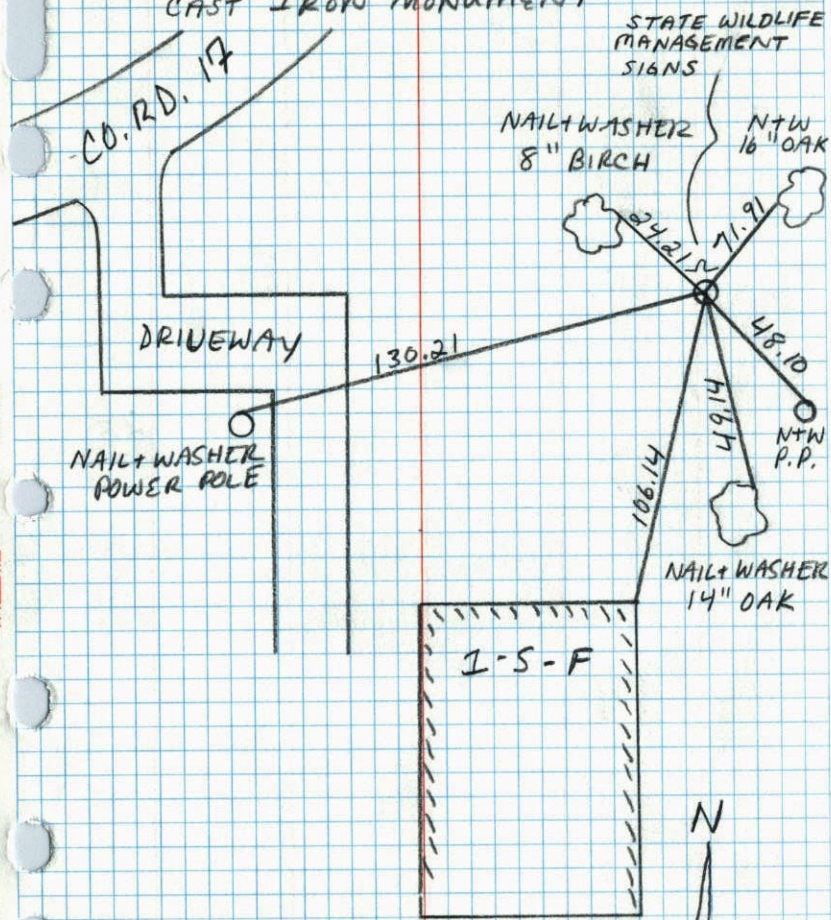 CAST IRON MONUMENT
STATE WILDLIFE
MANAGEMENT
SIGNS
CO. RD. 17
NAIL+WASHER
8" BIRCH
N+W
16" OAK
24.21
71.91
DRIVEWAY
130.21
48.10
NAIL+WASHER
POWER POLE
106.14
49.14
N+W
P.P.
NAIL+WASHER
14" OAK
1-S-F
N